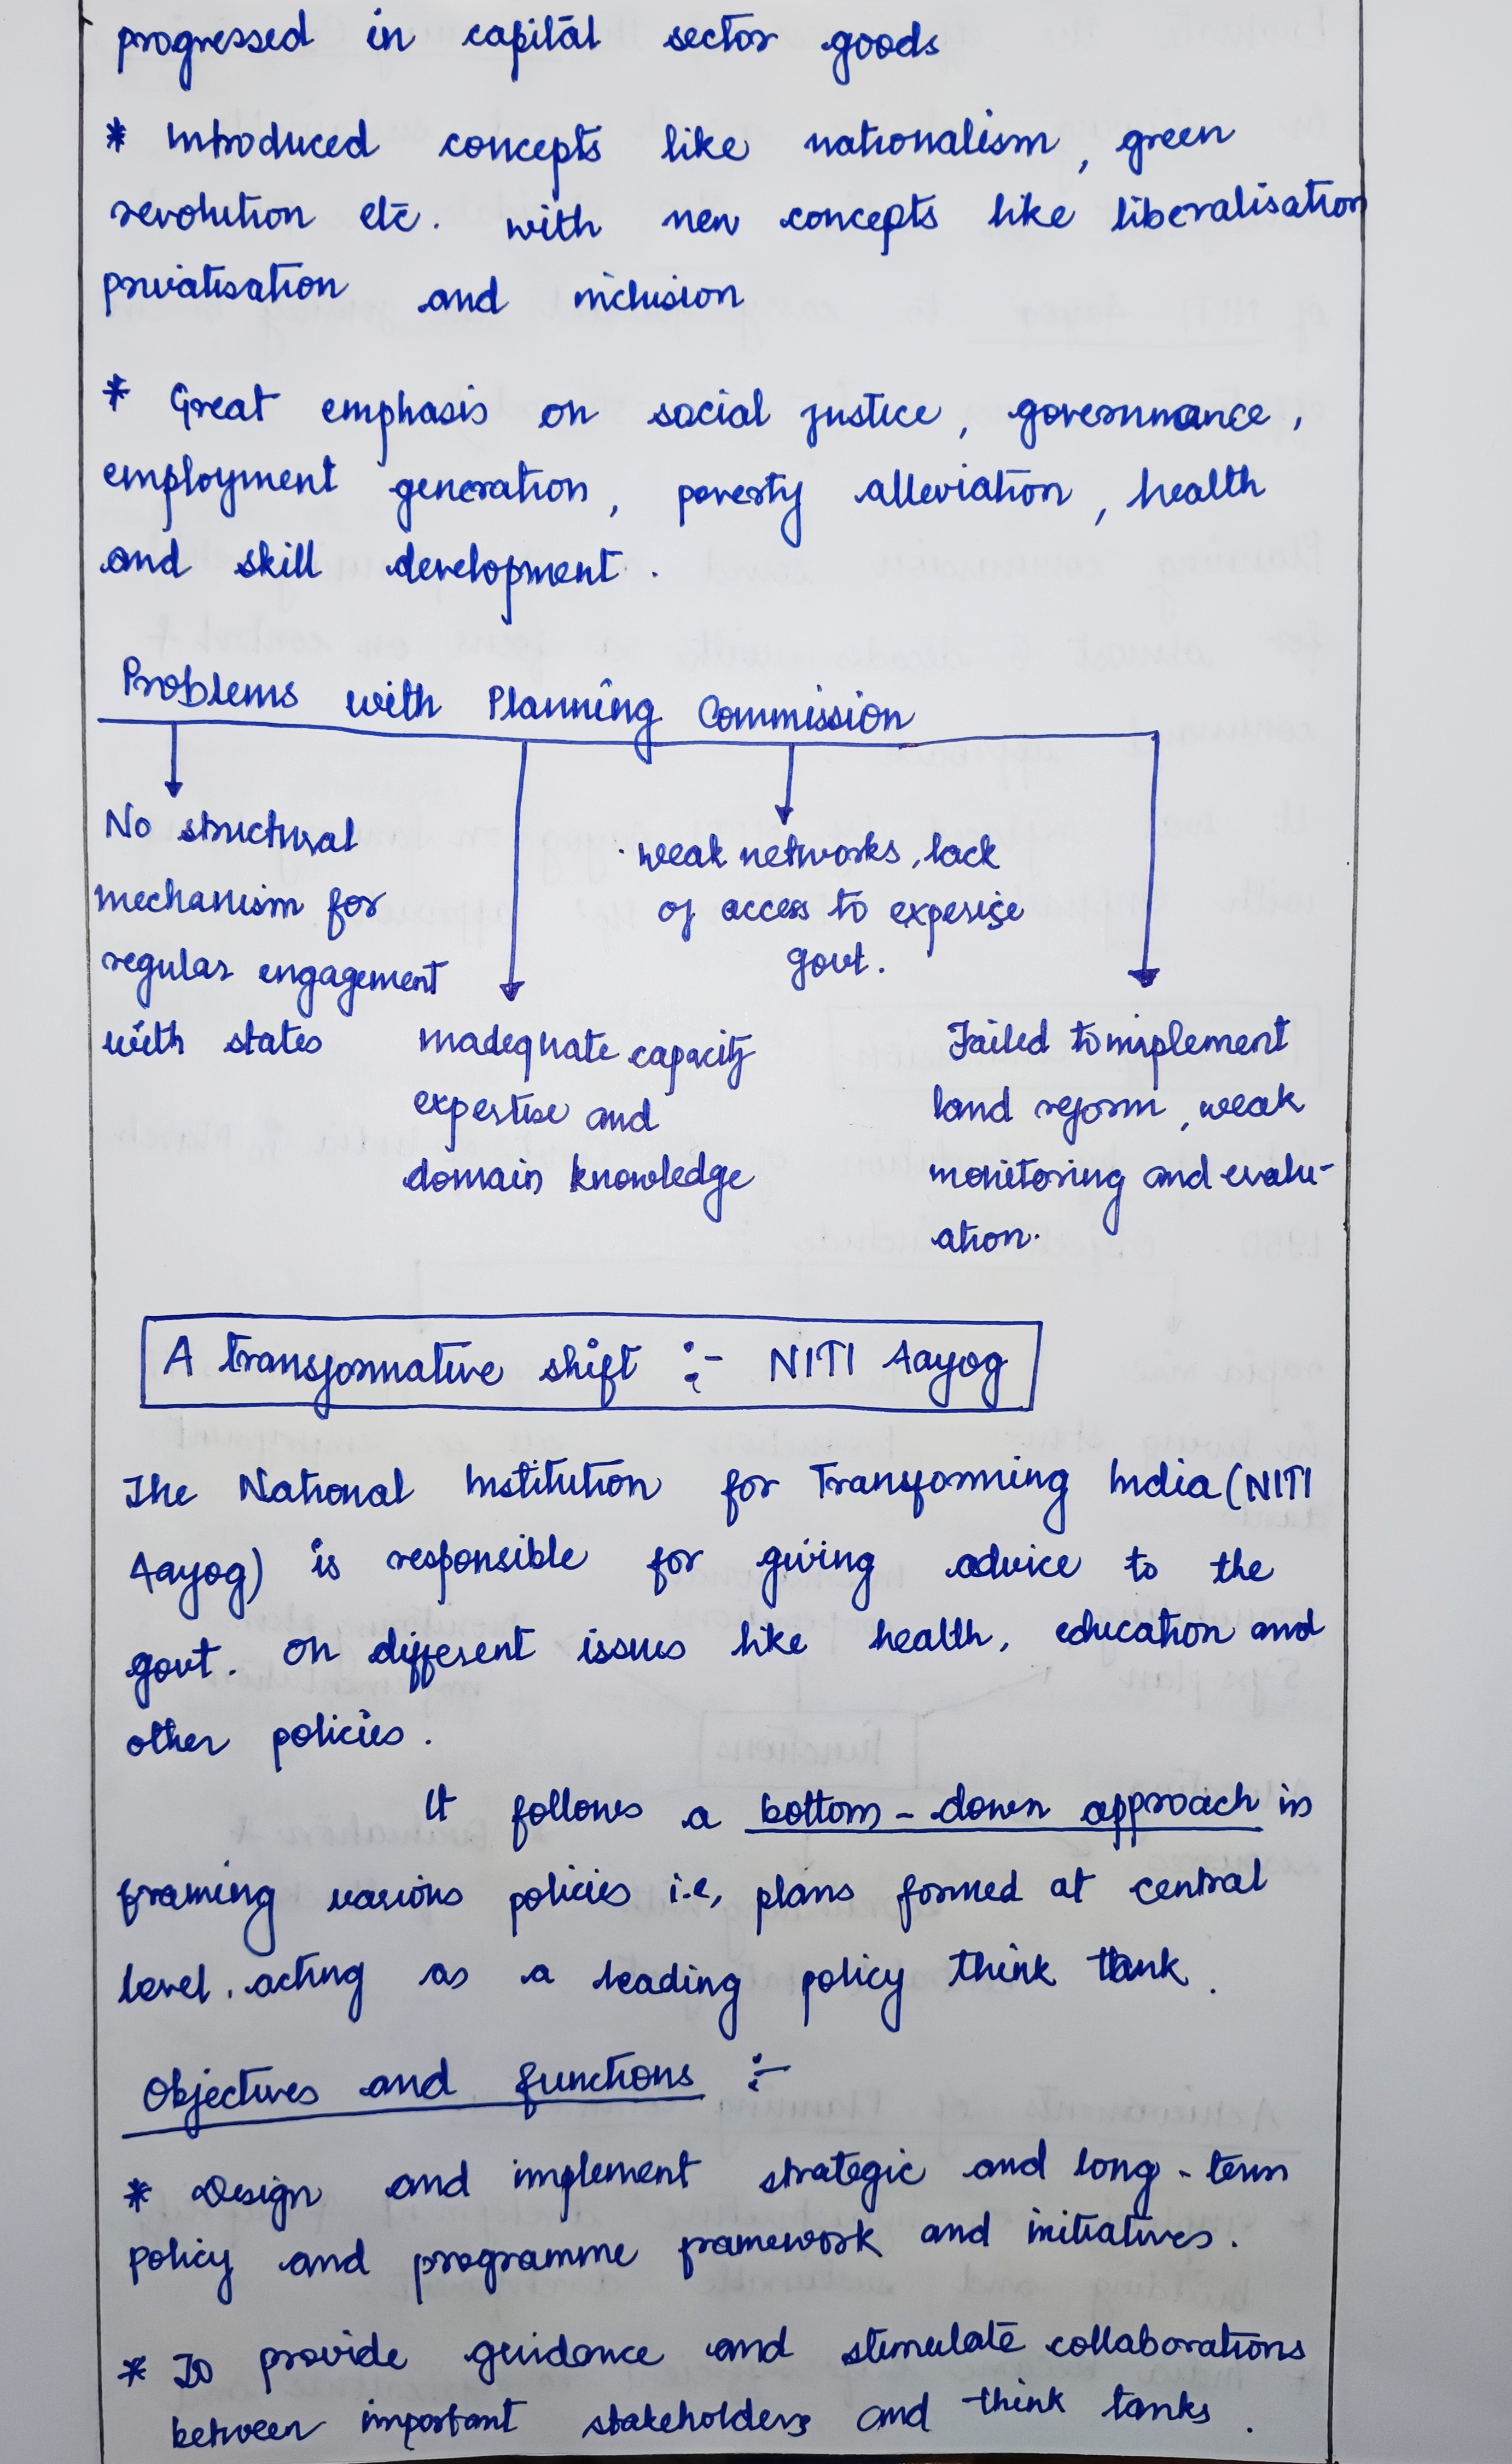 progressed in capital sector goods
* Introduced concepts like nationalism, green
revolution etc. with new concepts like liberalisation
privatisation and inclusion
* Great emphasis on social justice, governance,
employment generation, poverty alleviation, health
and skill development.
Problems with Planning Commission
No structural
mechanism for
regular engagement
with states
inadequate capacity
expertise and
domain knowledge
weak networks, lack
of access to experise
govt.
Failed to implement
land reform, weak
monitoring and evalu-
ation.
A transformative shift :- NITI Aayog
The National Institution for Transforming India (NITI
Aayog) is responsible for giving advice to the
govt. on different issues like health, education and
other policies.
It follows a bottom-down approach in
framing various policies i.e, plans formed at central
level, acting as a leading policy think tank.
Objectives and functions :-
* Design and implement strategic and long-term
policy and programme framework and initiatives.
* To provide guidance and stimulate collaborations
between important stakeholders and think tanks.